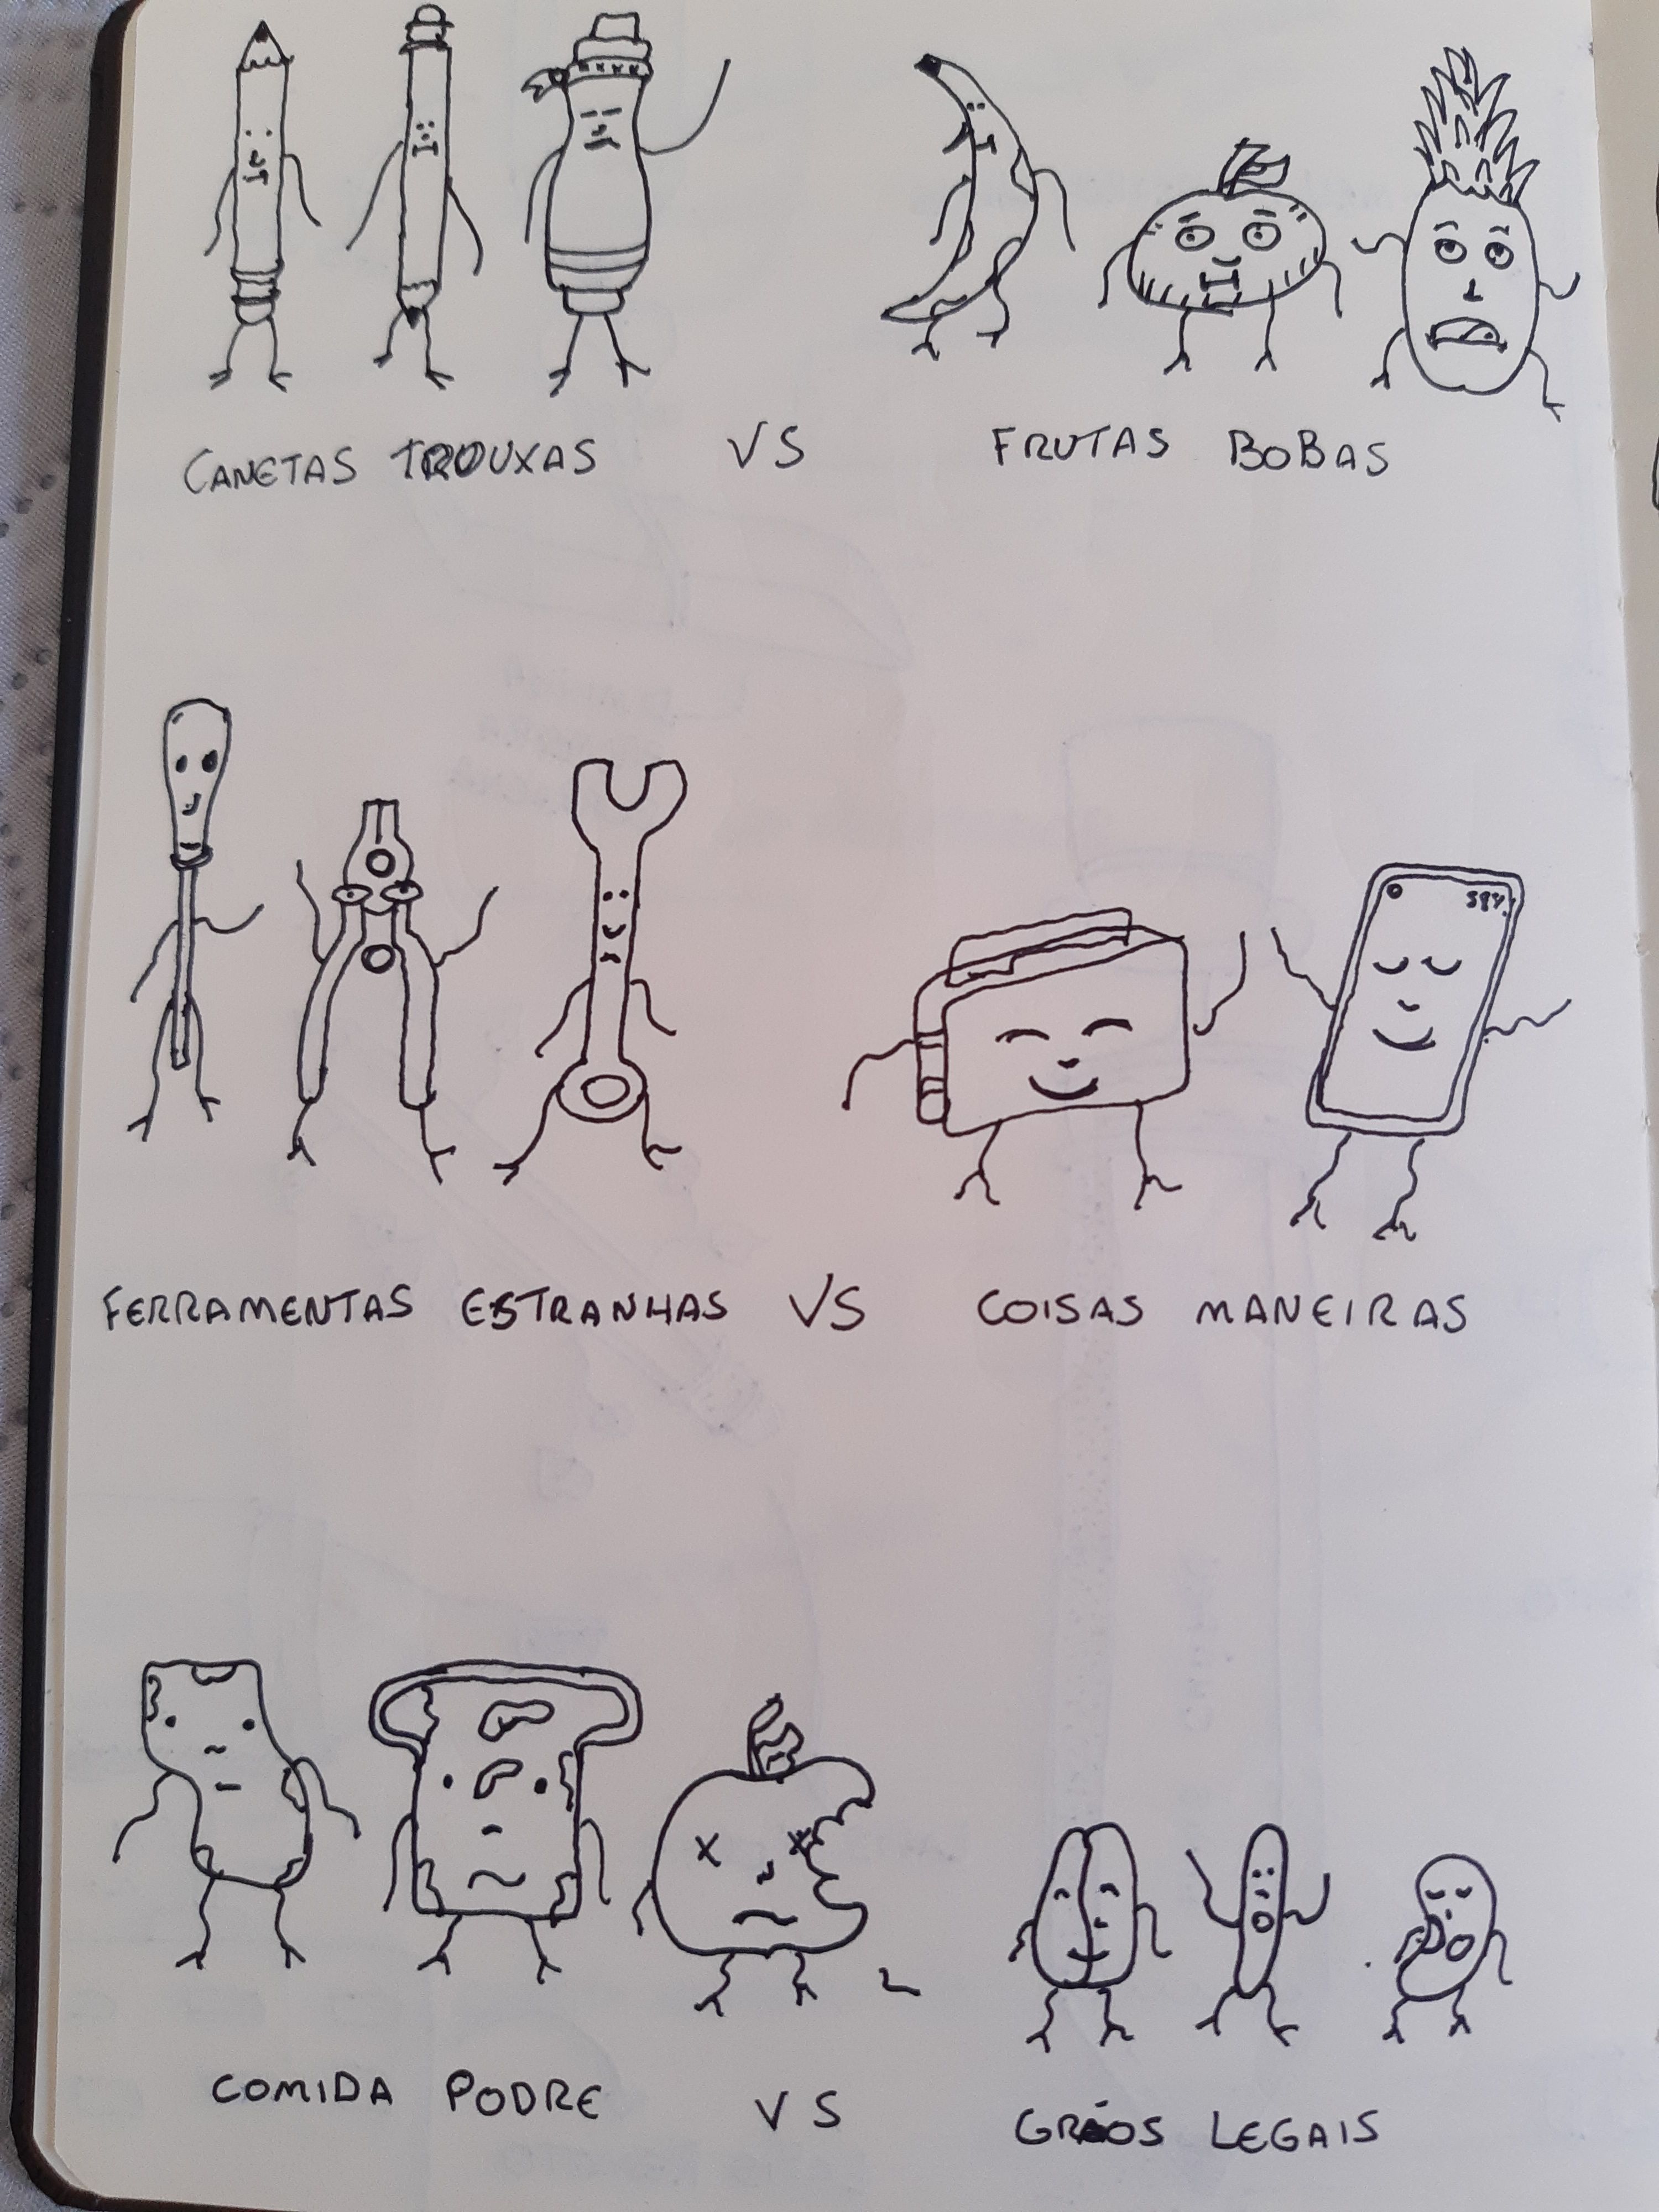 CANETAS TROUXAS VS FRUTAS BOBAS
FERRAMENTAS ESTRANHAS VS COISAS MANEIRAS
COMIDA PODRE VS GRÃOS LEGAIS